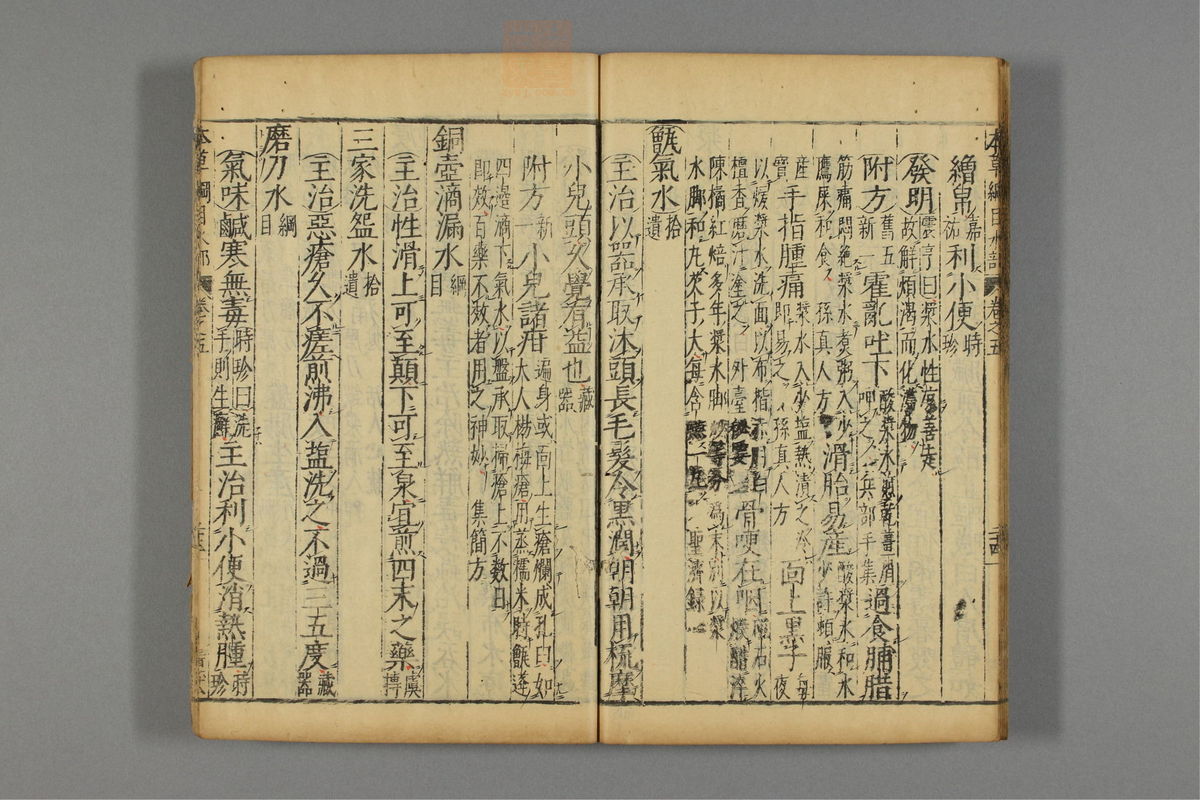 本草綱目水部 卷之五
繒帛嘉祐利小便時珍
發明震亨曰漿水性涼善走故解煩渴而化滯物
附方舊五新一霍亂吐下酸漿水煎乾薑屑呷之 兵部手集過食脯腊
筋痛悶絶漿水煮粥入少
鷹屎和食 孫真人方滑胎易產酸漿水和水少許頓服
產手指腫痛漿水入少鹽熱漬之冷即易之 孫真人方面上黑子每夜
以煖漿水洗面以布揩
檀香磨汁塗之 外臺秘要骨哽在咽磁石火煅醋淬
陳橘紅焙多年漿水脚炒等分爲末別以漿
水脚和丸芡子大每含嚥一丸 聖濟錄
甑氣水拾遺
主治以器承取沐頭長毛髮令黑潤朝朝用梳摩
小兒頭久覺有益也藏器
附方新一小兒諸疳遍身或面上生瘡爛成孔臼如大人楊梅瘡用蒸糯米時甑蓬
四邊滴下氣水以盤承取掃瘡上不數日
即效百藥不效者用之神妙 集簡方
銅壺滴漏水綱目
主治性滑上可至顛下可至泉宜煎四末之藥虞摶
三家洗盌水拾遺
主治惡瘡久不瘥煎沸入鹽洗之不過三五度藏器
磨刀水綱目
氣味鹹寒無毒時珍曰洗手則生癬主治利小便消熱腫時珍
本草綱目水部 卷之五